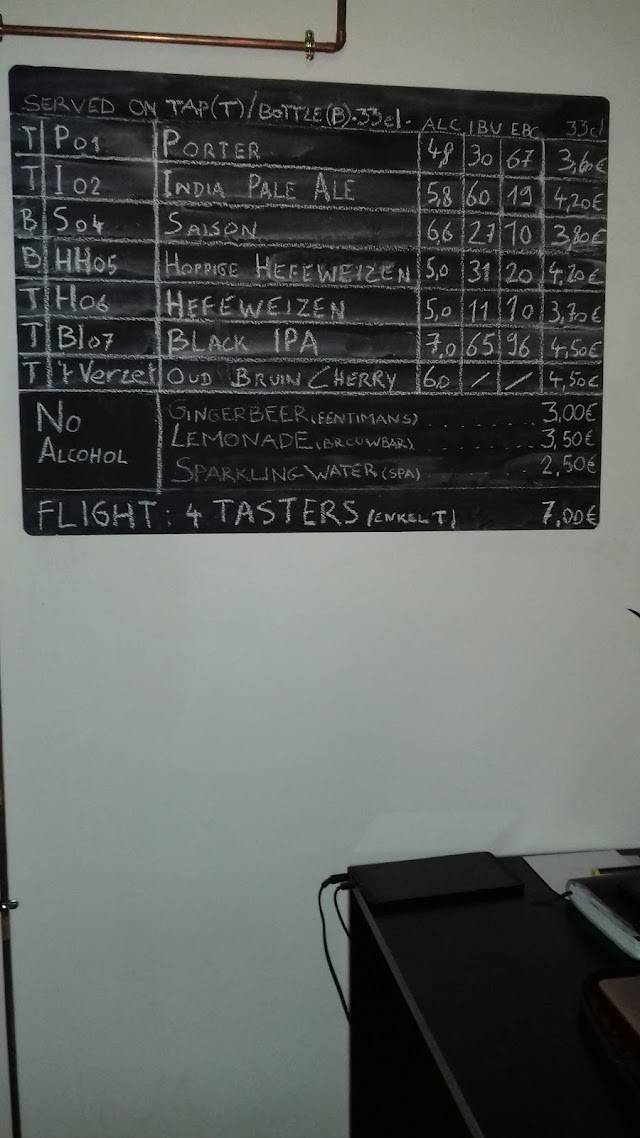 SERVED ON TAP(T)/BOTTLE(B).33cl. ALC IBU EBC 33cl
T P01 PORTER 4,8 30 67 3,60€
T I02 INDIA PALE ALE 5,8 60 19 4,20€
B S04 SAISON 6,6 27 10 3,80€
B HH05 HOPPIGE HEFEWEIZEN 5,0 31 20 4,20€
T H06 HEFEWEIZEN 5,0 11 10 3,70€
T BI07 BLACK IPA 7,0 65 96 4,50€
T 't Verzet OUD BRUIN CHERRY 6,0 / / 4,50€
NO ALCOHOL
GINGERBEER (FENTIMANS) ........ 3,00€
LEMONADE (BROUWBAR) ........ 3,50€
SPARKLING WATER (SPA) ........ 2,50€
FLIGHT: 4 TASTERS (ENKEL T) 7,00€